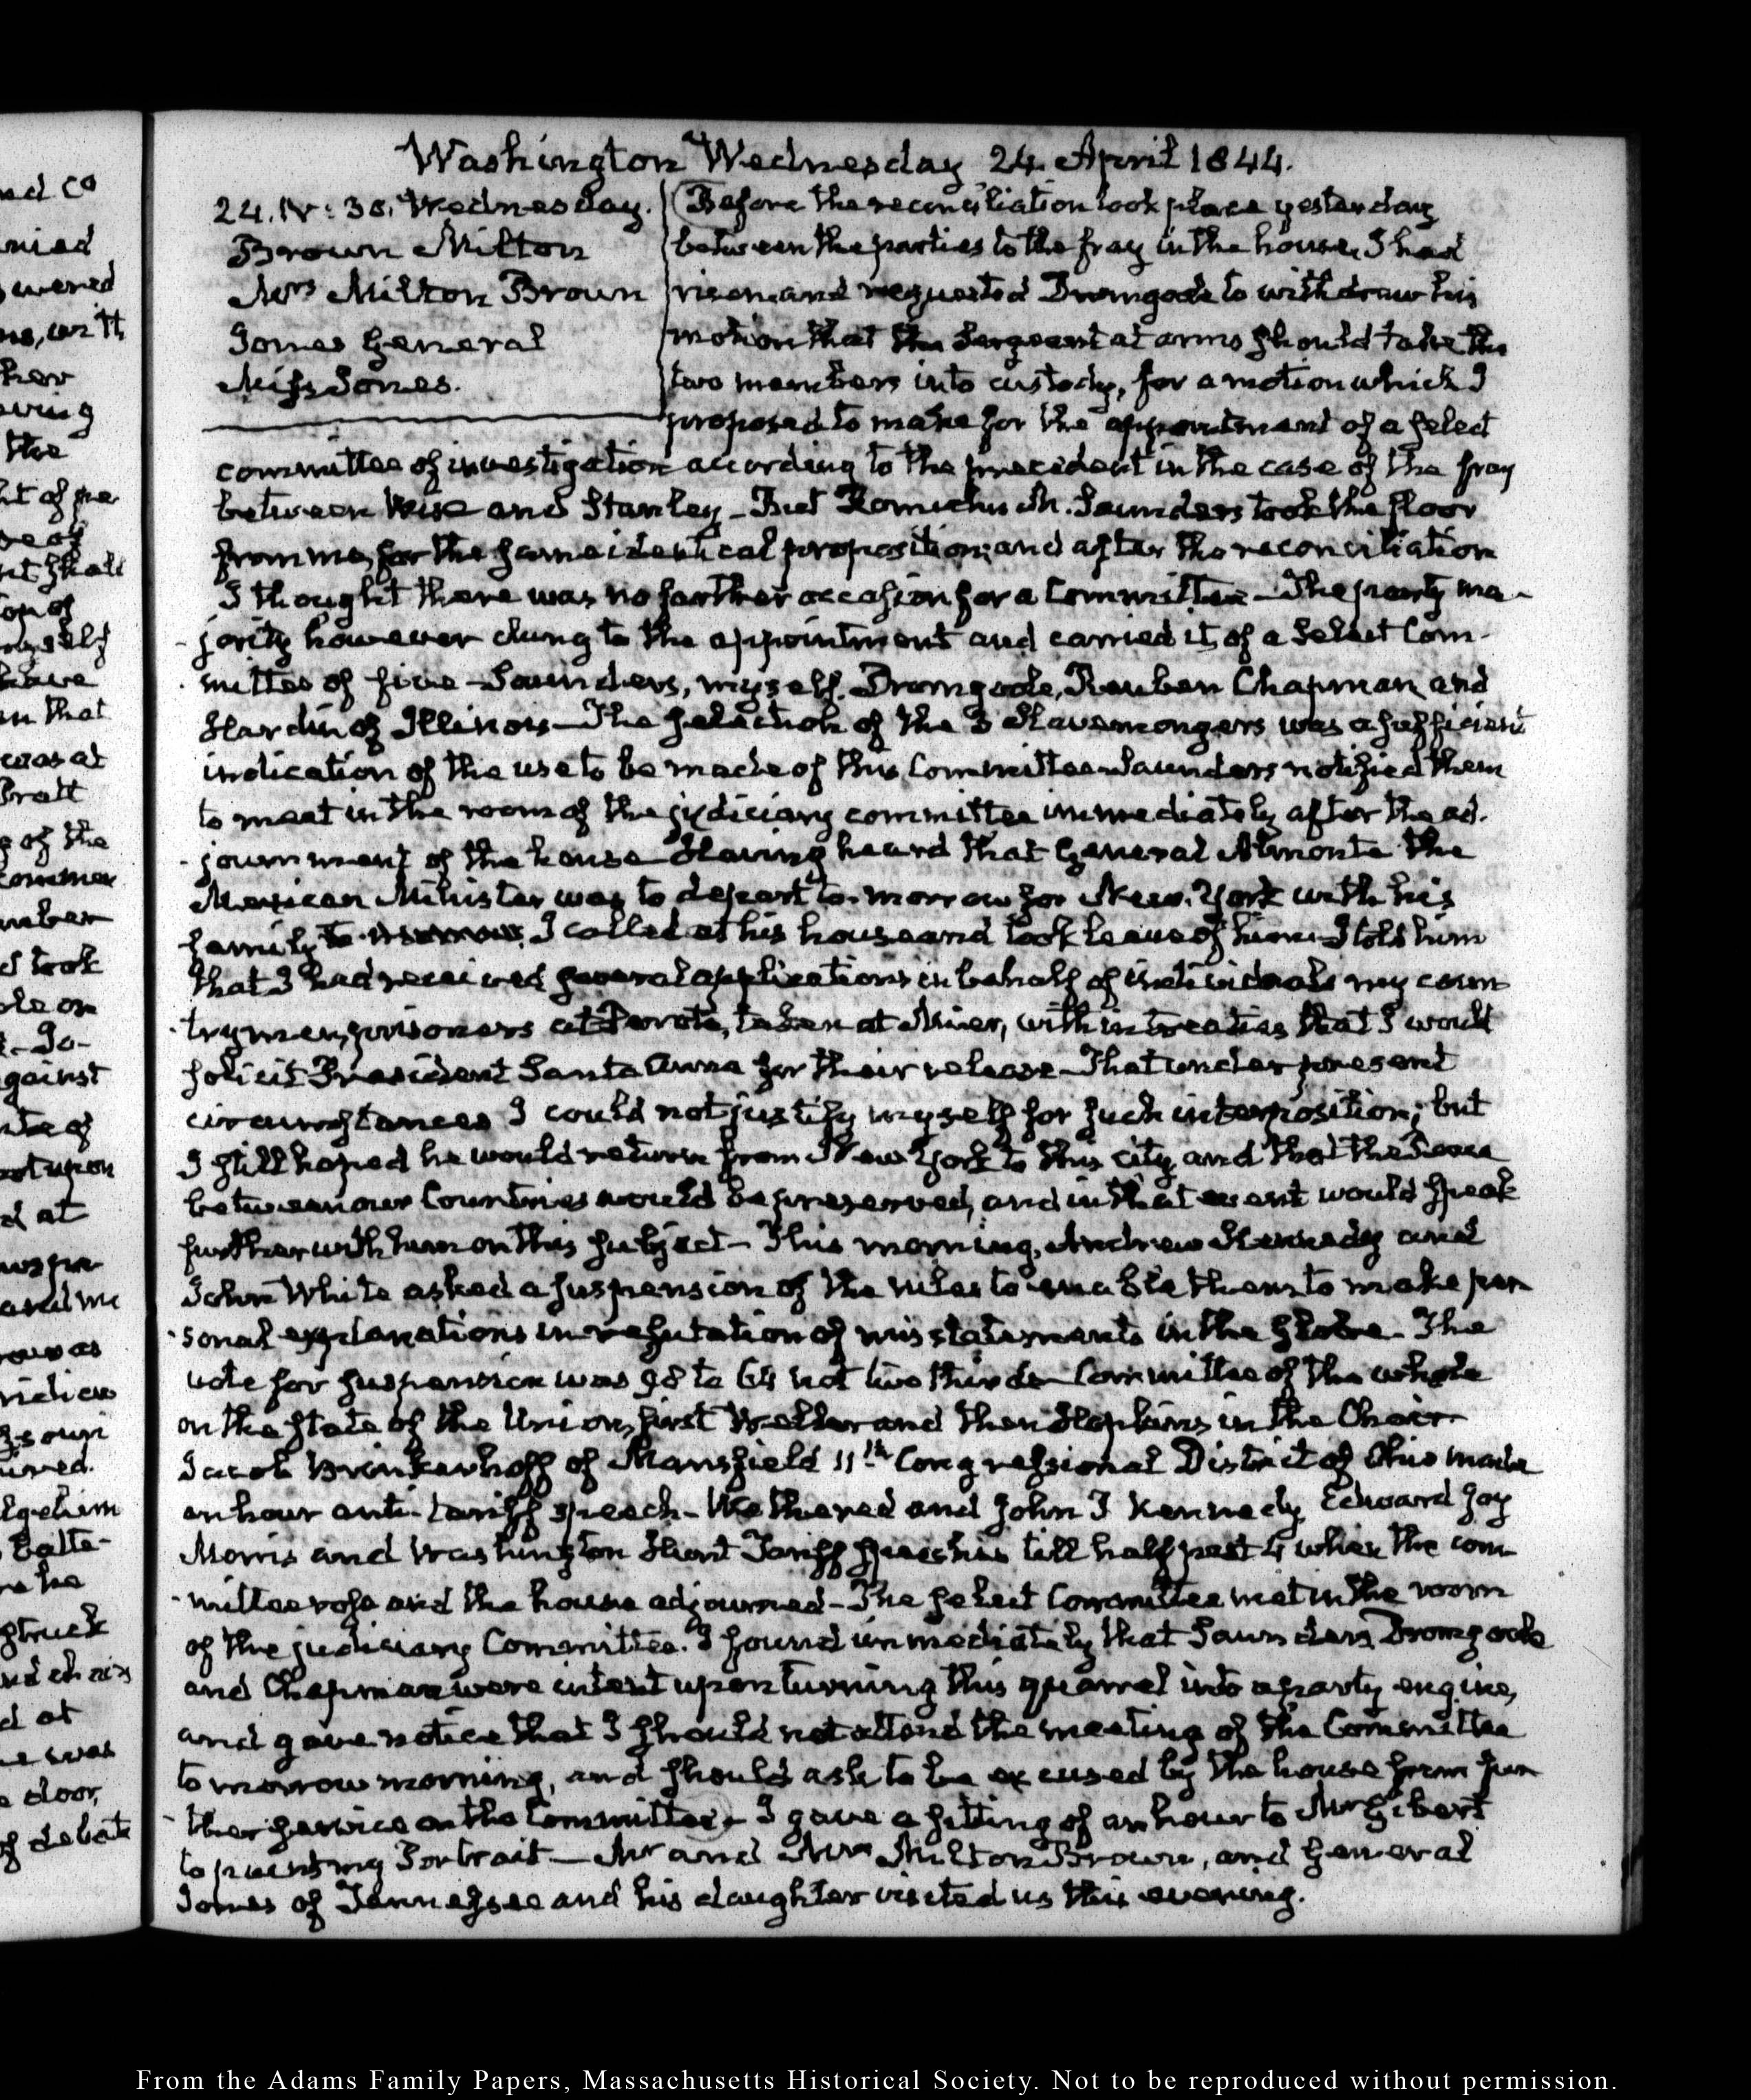 Washington Wednesday 24. April 1844.
24. IV: 30. Wednesday.
Brown Milton
Mrs Milton Brown
Jones General
Miss Jones.
Before the reconciliation took place yesterday
between the parties to the fray in the house, I had
risen and requested Dromgoole to withdraw his
motion that the Sergeant at arms should take the
two members into custody, for a motion which I
proposed to make for the appointment of a select
committee of investigation according to the precedent in the case of the fray
between Wise and Stanley - But Romulus M. Saunders took the floor
from me, for the same identical proposition; and after the reconciliation
I thought there was no further occasion for a Committee - The party ma-
jority however clung to the appointment and carried it, of a Select Com-
mittee of five - Saunders, myself, Dromgoole, Reuben Chapman and
Hardin of Illinois - The selection of the 3 Slavemongers was a sufficient
indication of the use to be made of this Committee - Saunders notified them
to meet in the room of the judiciary committee immediately after the ad-
journment of the house - Having heard that General Almonte the
Mexican Minister was to depart to-morrow for New-York with his
family to-morrow, I called at his house and took leave of him - I told him
that I had received several applications in behalf of individuals my coun-
trymen, prisoners at Perote, taken at Mier, with intreaties that I would
solicit President Santa Anna for their release - That under present
circumstances I could not justify myself for such interposition; but
I still hoped he would return from New York to this city, and that the Peace
between our Countries would be preserved, and in that event would speak
further with him on this subject - This morning, Andrew Kennedy and
John White asked a suspension of the rules to enable them to make per-
sonal explanations in refutation of misstatements in the Globe - The
vote for suspension was 98 to 64 not two thirds - Committee of the whole
on the state of the Union, first Weller and then Hopkins in the Chair -
Jacob Brinkerhoff of Mansfield 11th Congressional District of Ohio made
an hour anti-tariff speech - Wethered and John P Kennedy, Edward Joy
Morris and Washington Hunt Tariff speeches till half past 4 when the com-
mittee rose and the house adjourned - The select Committee met in the room
of the judiciary Committee. I found immediately that Saunders, Dromgoole
and Chapman were intent upon turning this quarrel into a party engine,
and gave notice that I should not attend the meeting of the Committee
to morrow morning, and should ask to be excused by the house from fur-
ther service on the Committee - I gave a sitting of an hour to Mr Gibert
to paint my Portrait - Mr and Mrs Milton Brown, and General
Jones of Tennessee and his daughter visited us this evening.
From the Adams Family Papers, Massachusetts Historical Society. Not to be reproduced without permission.